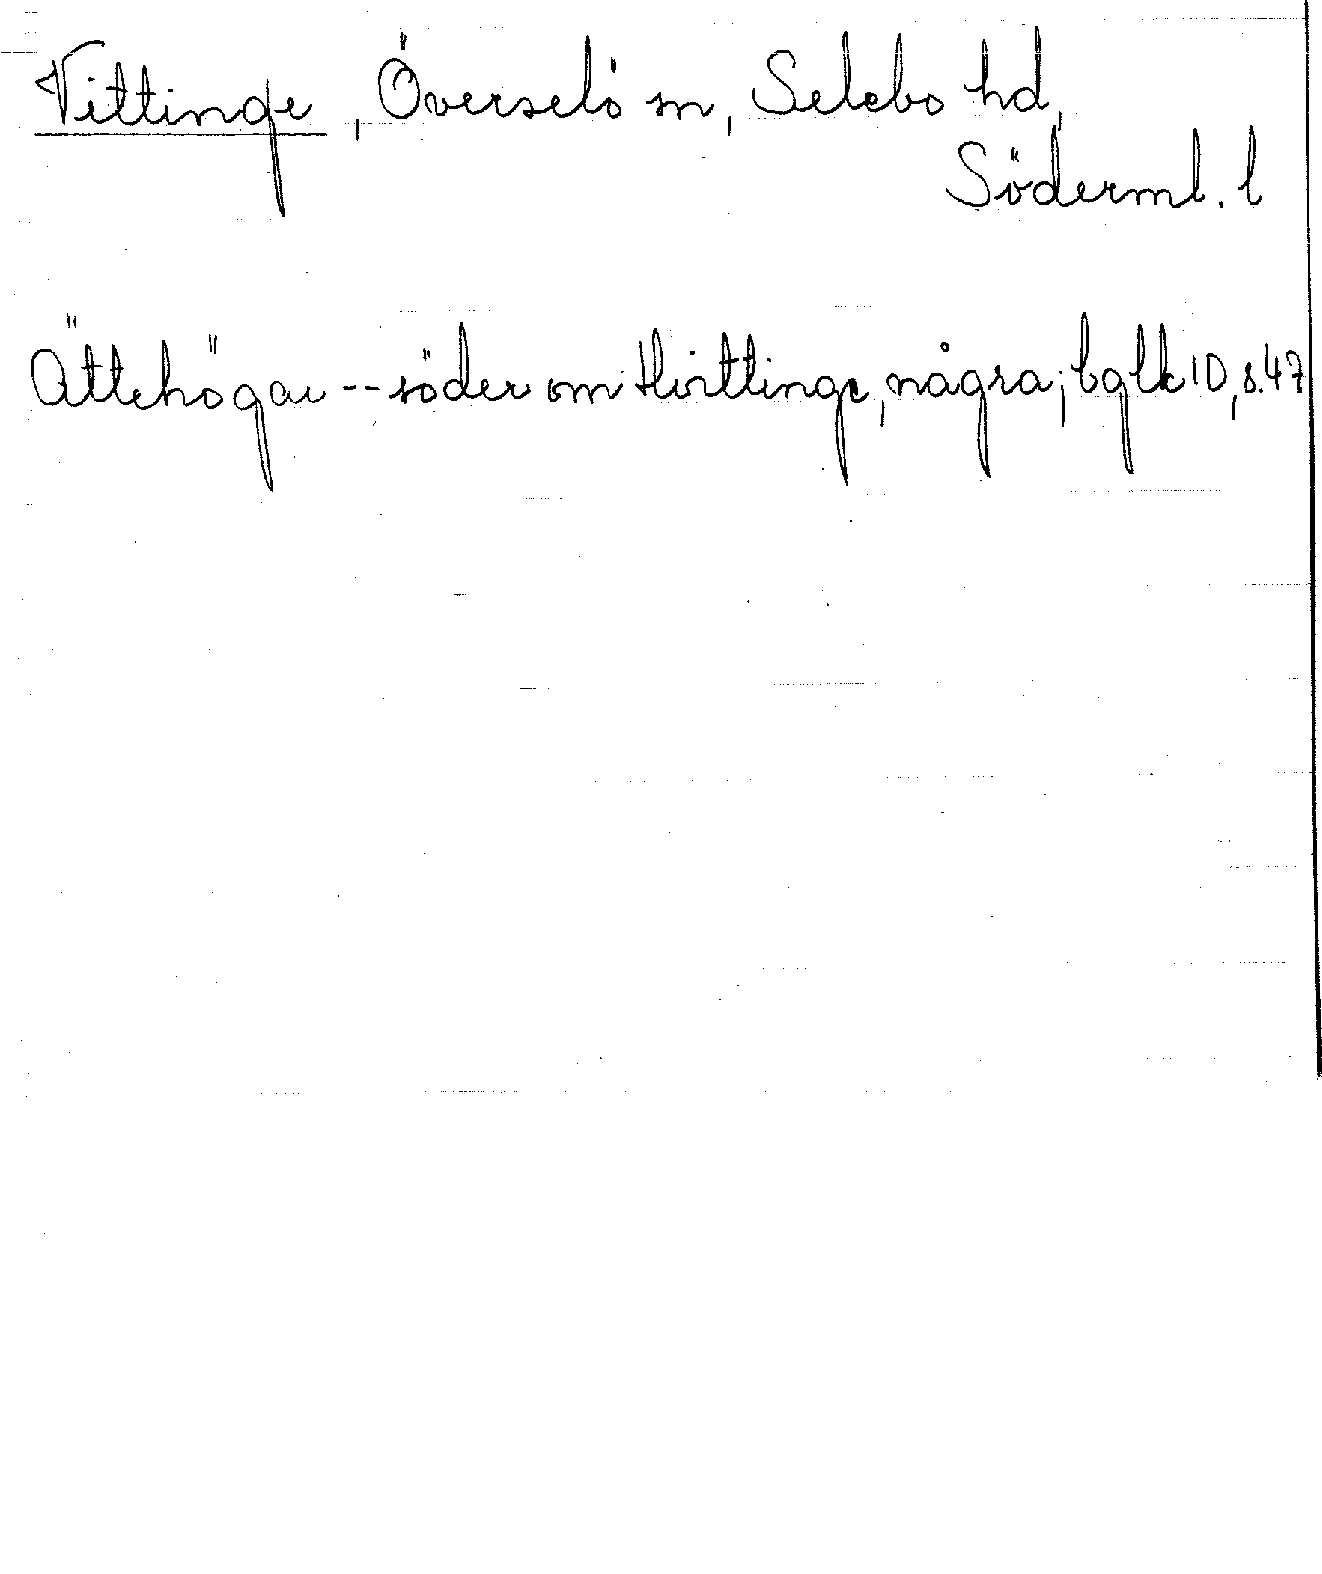 Vittinge, Överselö sn, Selebo hd,
Söderml. l
Ättehögar -- söder om Hvittinge, några; bglk 10, s. 47